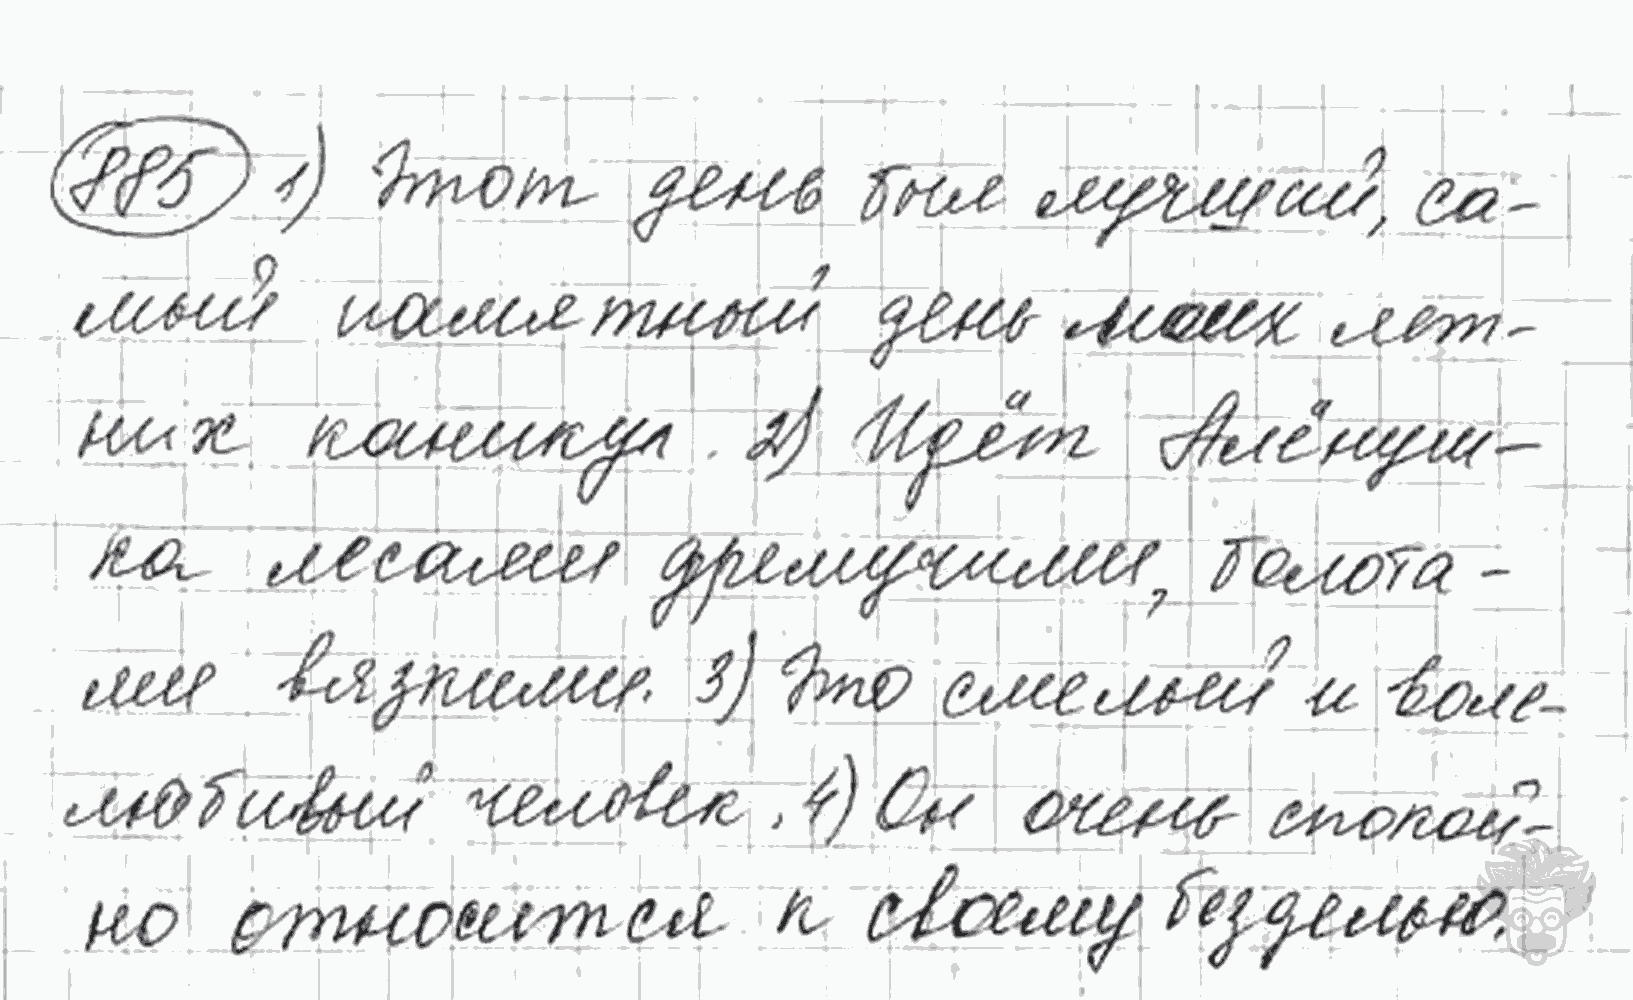 885 1) Этот день был лучший, са-
мый памятный день моих лет-
них каникул. 2) Идёт Алёнуш-
ка лесами дремучими, болота-
ми вязкими. 3) Это смелый и воле-
любивый человек. 4) Он очень спокой-
но относится к своему безделью.